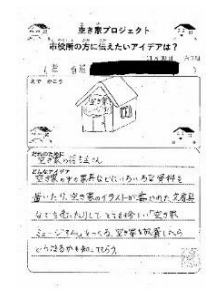 空き家プロジェクト
市役所の方に伝えたいアイデアは？
えで かこう
空き家
だれのために
空き家の
どんなアイデア
空き家の中の家具などにいろいろな資料を
置いたり、空き家のイラストが書かれた文房具
などを売ったりして、とても楽しい「空き家
ミュージアム」をつくる。空き家を放置したら
どうなるかを知ってもらう。